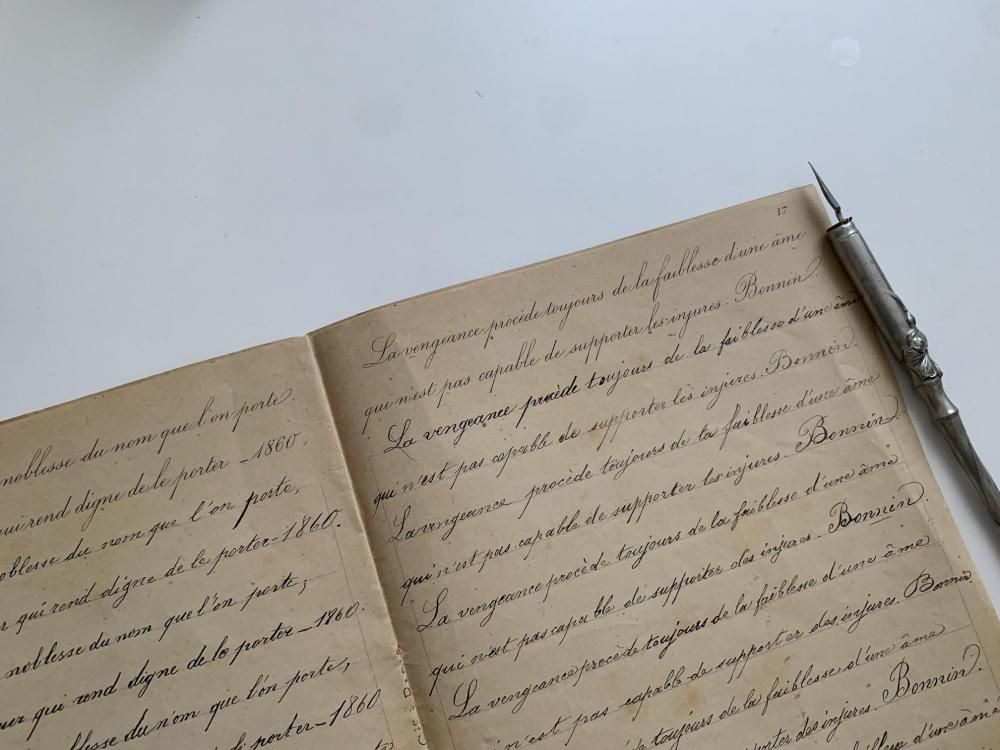 noblesse du nom que l'on porte.
qui rend digne de le porter _ 1860.
noblesse du nom que l'on porte,
qui rend digne de le porter _ 1860.
noblesse du nom que l'on porte,
qui rend digne de le porter _ 1860.
noblesse du nom que l'on porte,
porter _ 1860
17
La vengeance procède toujours de la faiblesse d'une âme
qui n'est pas capable de supporter les injures. Bonnin.
La vengeance procède toujours de la faiblesse d'une âme
qui n'est pas capable de supporter les injures. Bonnin.
La vengeance procède toujours de la faiblesse d'une âme
qui n'est pas capable de supporter les injures. Bonnin.
La vengeance procède toujours de la faiblesse d'une âme
qui n'est pas capable de supporter des injures. Bonnin.
La vengeance procède toujours de la faiblesse d'une âme
qui n'est pas capable de supporter des injures. Bonnin.
toujours de la faiblesse d'une âme
des injures. Bonnin.
d'une âme